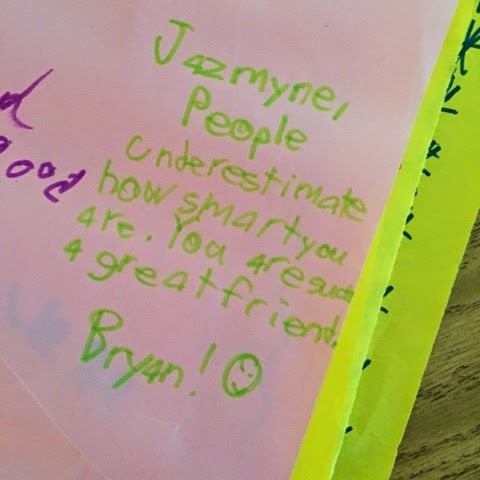 Jazmyne,
People
underestimate
how smart you
are. You are such
a great friend.
Bryan!
ood